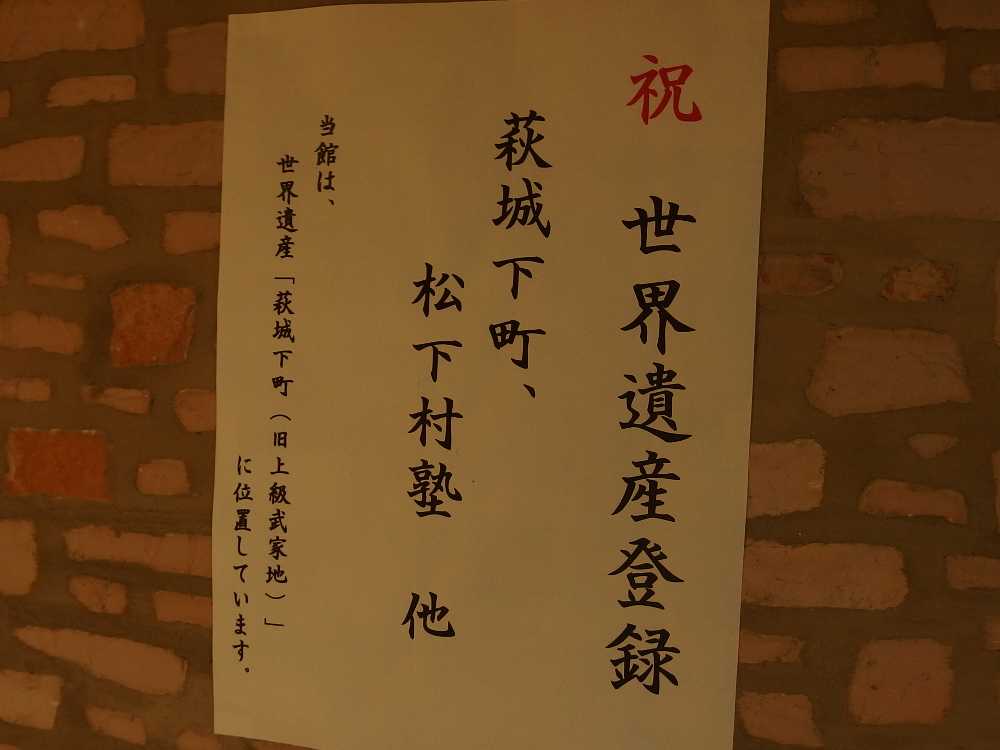 祝 世界遺産登録
萩城下町、
松下村塾 他
当館は、
世界遺産「萩城下町(旧上級武家地)」
に位置しています。